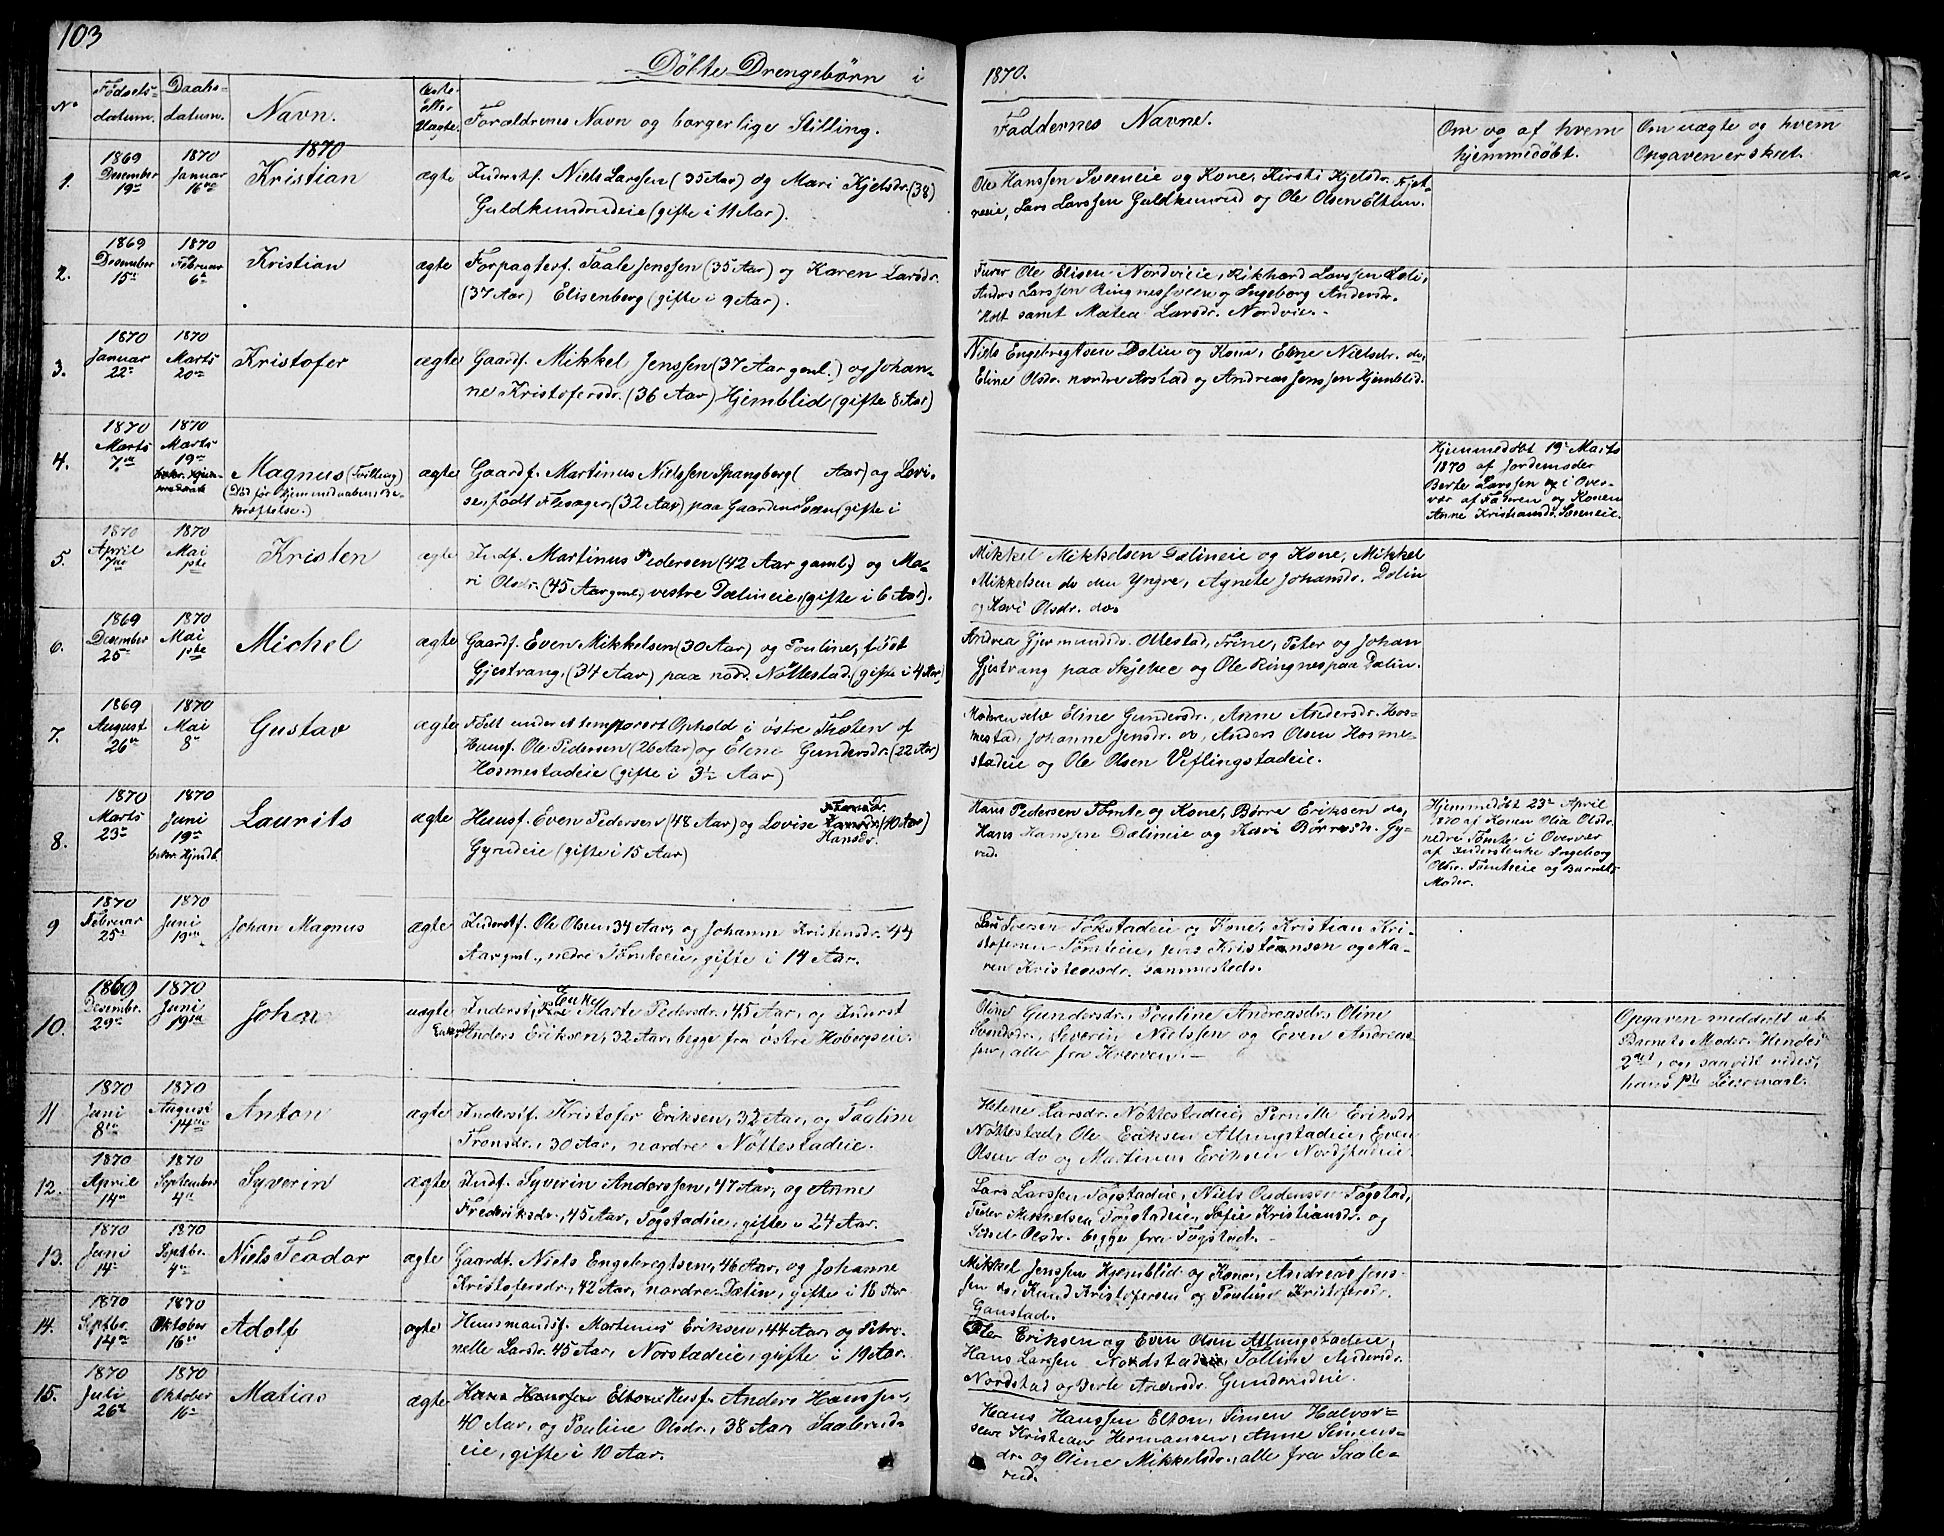 103
Döbte Drengebörn i 1870.
No
Födsels-
datum.
Daabs-
datum.
Navn.
Ægte
eller
Uægte.
Forældrenes Navn og borgerlige Stilling.
Faddernes Navne.
Om og af hvem
hjemmedøbt.
Om uægte og hvem
Opgaven er skeet.
1870
1.
1869
Desember
19de
1870
Januar
16de
Kristian
ægte
Inderstf. Niels Larssen (35 Aar) og Mari Kjelsdr. (38)
Guldkunrudeie (gifte i 11 Aar).
Ole Hanssen Sveeneie og Kone, Kirsti Kjelsdr.
neeie, Lars Larssen Guldkunrud og Ole Olsen Elton.
2.
1869
Desember
15de
1870
Februar
6te
Kristian
ægte
Forpagterf. Taale Jenssen (35 Aar) og Karen Larsdr.
(37 Aar) Elisenberg (gifte i 9 Aar).
Furer Ole Elisen Nordvieie, Rikhard Larssen
Anders Larssen Ringnessveen og Ingeborg Andersdr.
Holt samt Matea Larsdr. Nordvie.
3.
1870
Januar
22de
1870
Marts
20de
Kristofer
ægte
Gaardf. Mikkel Jenssen (37 Aar gml.) og Johan-
ne Kristofersdr. (36 Aar) Hjemblid (gifte 8 Aar)
Niels Engebregtsen Dælin og Kone, Eline Nielsdr. do,
Eline Olsdr. nordre Arstad og Andreas Jenssen Hjemblid.
4.
1870
Marts
7de
1870
Marts
19de
Magnus (Tvilling)
(Død før Hjemmedaabens Be-
kræftelse.)
ægte
Gaardf. Martinus Nielssen Spangberg ( Aar) og Lovi-
se, født (32 Aar) paa Gaarden Sveen (gifte i
Hjemmedøbt 19de Marts
1870 af Jordemoder
Berte Larssen og i Over-
vær af Faderen og Konen
Anne Kristiansdr. Sveeneie.
5.
1870
April
7de
1870
Mai
1ste
Kristen
ægte
Indf. Martinus Pedersen (42 Aar gaml.) og Ma-
ri Olsdr. (45 Aar gml.) vestre Dælineie, (gifte i 6 Aar).
Mikkel Mikkelsen Dælineie og Kone, Mikkel
Mikkelsen do den Yngre, Agnete Johansdr. Dælin
og Kari Olsdr. do.
6.
1869
Desember
25de
1870
Mai
1ste
Michel
ægte
Gaardf. Even Mikkelsen (30 Aar) og Pouline, født
Gjestrang, (34 Aar) paa nord. Nöttestad. (gifte i 4 Aar)
Andrea Gjermundsdr. Ottestad, Trine, Peter og Johan
Gjestrang paa Skjelve og Ole Ringnes paa Dælin.
7.
1869
August
26de
1870
Mai
8de
Gustav
ægte
Født under et temporært Ophold i østre Thoten af
Huusf. Ole Pedersen (26 Aar) og Eline Gundersdr. (22 Aar)
Hosmestadeie (gifte i 3½ Aar)
Moderen selv Eline Gundersdr., Anne Andersdr. Hos-
mestad, Johanne Jensdr. do, Anders Olsen Hosme-
stadeie og Ole Olsen Viflingstadeie.
8.
1870
Marts
23de
1870
Juni
19de
bekr. Hjmdb.
Laurits
ægte
Huusf. Even Pedersen (48 Aar) og Lovise Hansdr. (40 Aar)
Gyrudeie (gifte i 15 Aar)
Hans Pedersen Tomte og Kone, Børre Eriksen do,
Hans Hanssen Dælineie og Kari Børresdr. Gy-
rud.
Hjemmedøbt 23de April
1870 af Konen Olia Olsdr.
nedre Tomte i Overvær
af Inderstenke Ingeborg
Olsdr. Tomteeie og Barnets
Moder.
9
1870
Februar
25de
1870
Juni
19de
Johan Magnus
ægte
Inderstf. Ole Olsen, 34 Aar, og Johanne Kristensdr. 44
Aar gml., nedre Tomteeie, gifte i 14 Aar.
Lars Iversen Tokstadeie og Kone, Kristian Kri-
stofersen Tomteeie, Lars Kristiansen og Ma-
ren Kristensdr. sammesteds.
10.
1869
Desembr.
29de
1870
Juni
19de
Johan
uægte
Inderst, Enke Marte Pedersdr., 45 Aar, og Inderst
Enkem. Anders Eriksen, 32 Aar, begge fra østre Hobergseie.
Oline Gundersdr., Pouline Andreasdr., Oline
Svendsdr., Severin Nielssen og Even Andreas-
sen, alle fra Kverven.—
Opgaven meddelt af
Barnets Moder. Hendes
2det, og saavidt vides,
hans 1ste Leiermaal.
11
1870
Juni
8de
1870
August
14de
Anton
ægte
Inderstf. Kristofer Eriksen, 32 Aar, og Pauline
Tronsdr., 30 Aar, nordre Nöttestadeie.
Helene Larsdr. Nöttestadeie, Pernille Eriksdr.
Nöttestad, Ole Eriksen Allungstadeie, Even
Olsen do og Martinus Eriksen Nordstadeie.
12.
1870
April
14de
1870
September
4de
Syverin
ægte
Indf. Syverin Anderssen, 47 Aar, og Anne
Frederiksdr., 45 Aar, Togstadeie, gifte i 24 Aar.
Lars Larssen Togstadeie, Niels Audensen Togstad,
Peder Mikkelsen Togstadeie, Sofie Kristiansdr. og
Sidsel Olsdr. begge fra Togstad.—
13.
1870
Juni
14de
1870
Septbr.
4de
Niels Teodor
ægte
Gaardf. Niels Engebregtsen, 46 Aar, og Johanne
Kristofersdr., 42 Aar, nordre Dælin, gifte i 18 Aar
Mikkel Jenssen Hjemblid og Kone, Andreas Jens-
sen do, Knud Kristofersen og Pouline Kristofersdr.
Gaustad.
14.
1870
Septbr.
14de
1870
Oktober
16de
Adolf
ægte
Huusmandsf. Martinus Eriksen, 44 Aar, og Petro-
nelle Larsdr. 45 Aar, Norstadeie, gifte i 19 Aar.
Peter Eriksen og Even Olsen Allungstadeie,
Hans Larssen Nordstadeie, Talline Andersdr.
Nordstad og Berte Andersdr. Gunderseie.
15.
1870
Juli
26de
1870
Oktober
16de
Matias
ægte
Hans Hanssen Elton Husf. Anders Hanssen,
40 Aar, og Pouline Olsdr., 38 Aar, Saalerud-
eie, gifte i 10 Aar.
Hans Hanssen Elton, Simen Halvor-
sen, Kristian Hermansen, Anne Simens-
dr. og Oline Mikkelsdr., alle fra Saale-
rud.